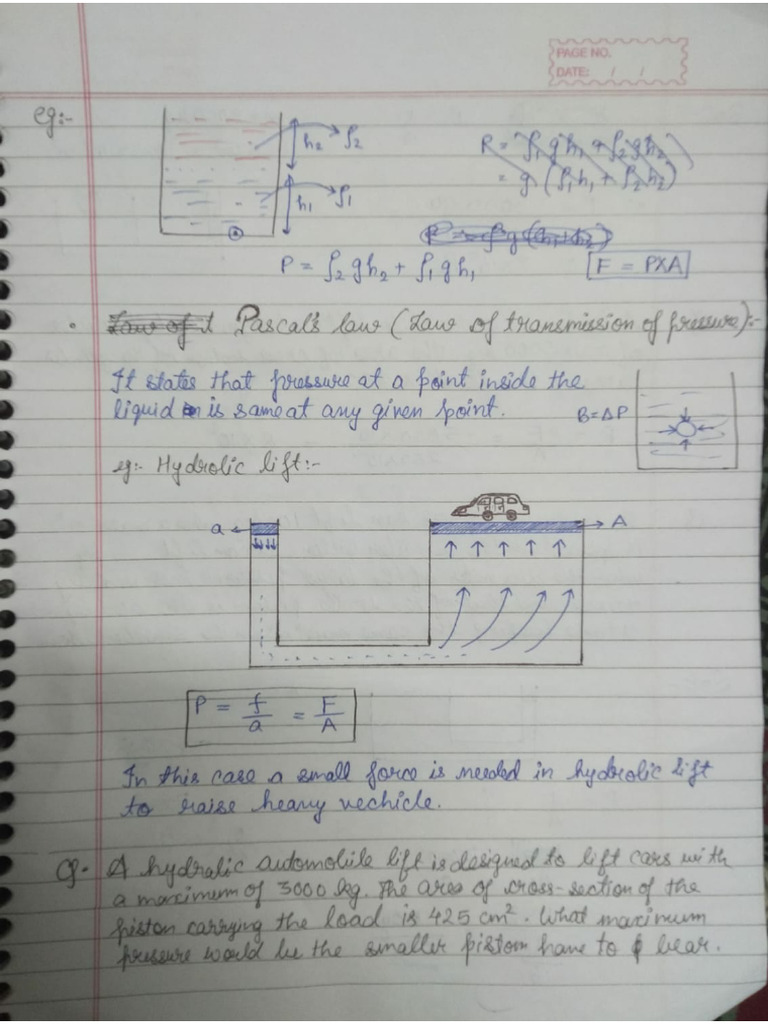 PAGE NO.
DATE: / /
eg:-
h₂ ρ₂
h₁ ρ₁
R = ρ₁gh₁ + ρ₂gh₂
= g (ρ₁h₁ + ρ₂h₂)
P = ρg(h₁+h₂)
P = ρ₂gh₂ + ρ₁gh₁
F = PXA
• Law of t Pascal's law (Law of transmission of pressure):-
It states that pressure at a point inside the
liquid is same at any given point.
B=ΔP
eg:- Hydrolic lift:-
a
A
P = f/a = F/A
In this case a small force is needed in hydrolic lift
to raise heavy vechicle.
Q- A hydralic automobile lift is designed to lift cars with
a maximum of 3000 kg. The area of cross-section of the
piston carrying the load is 425 cm². What maximum
pressure would be the smaller pistom have to bear.